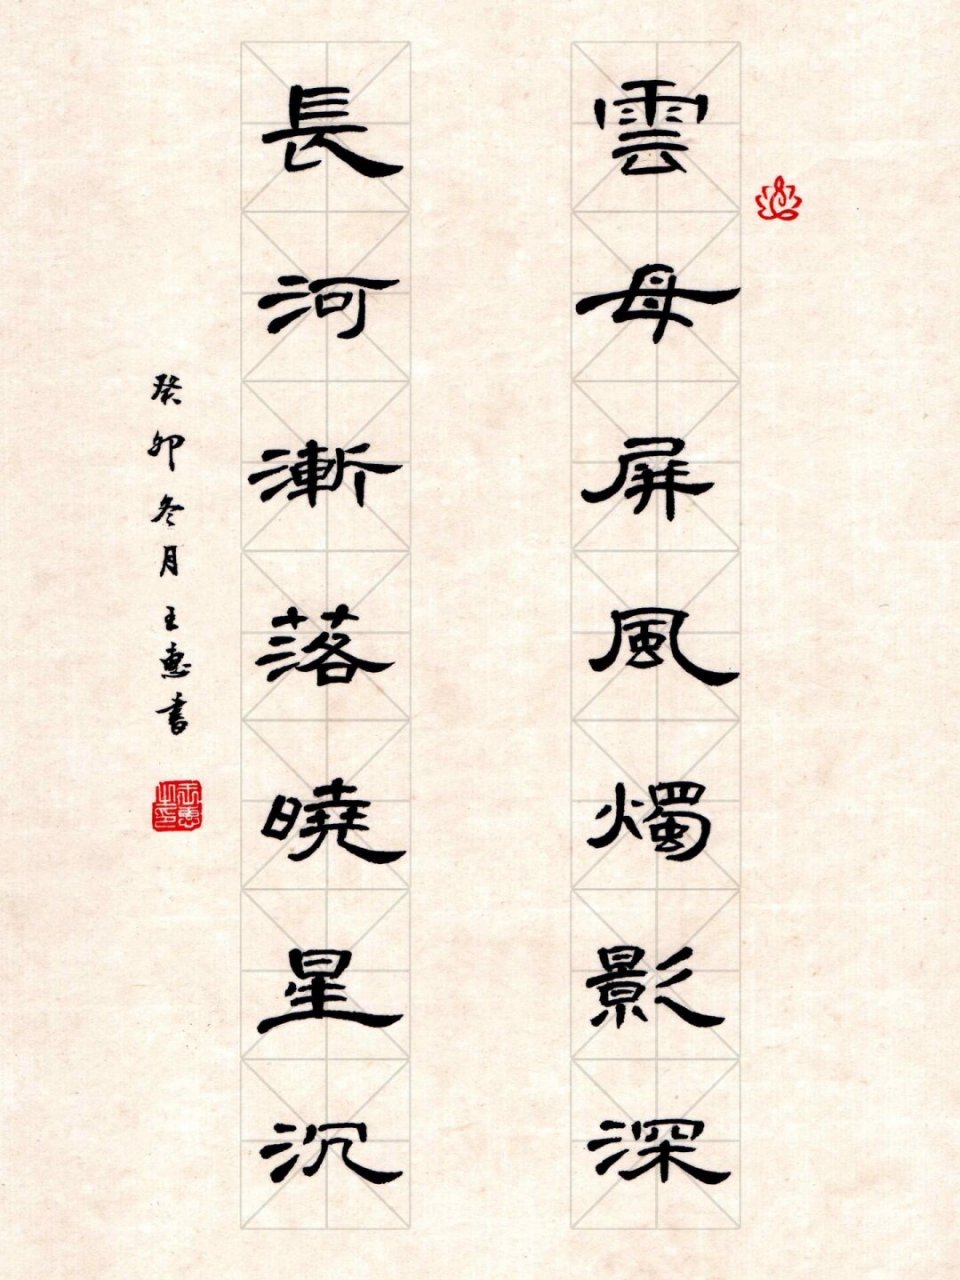 雲母屏風燭影深
長河漸落曉星沉
癸卯冬月王惠書
王惠之印